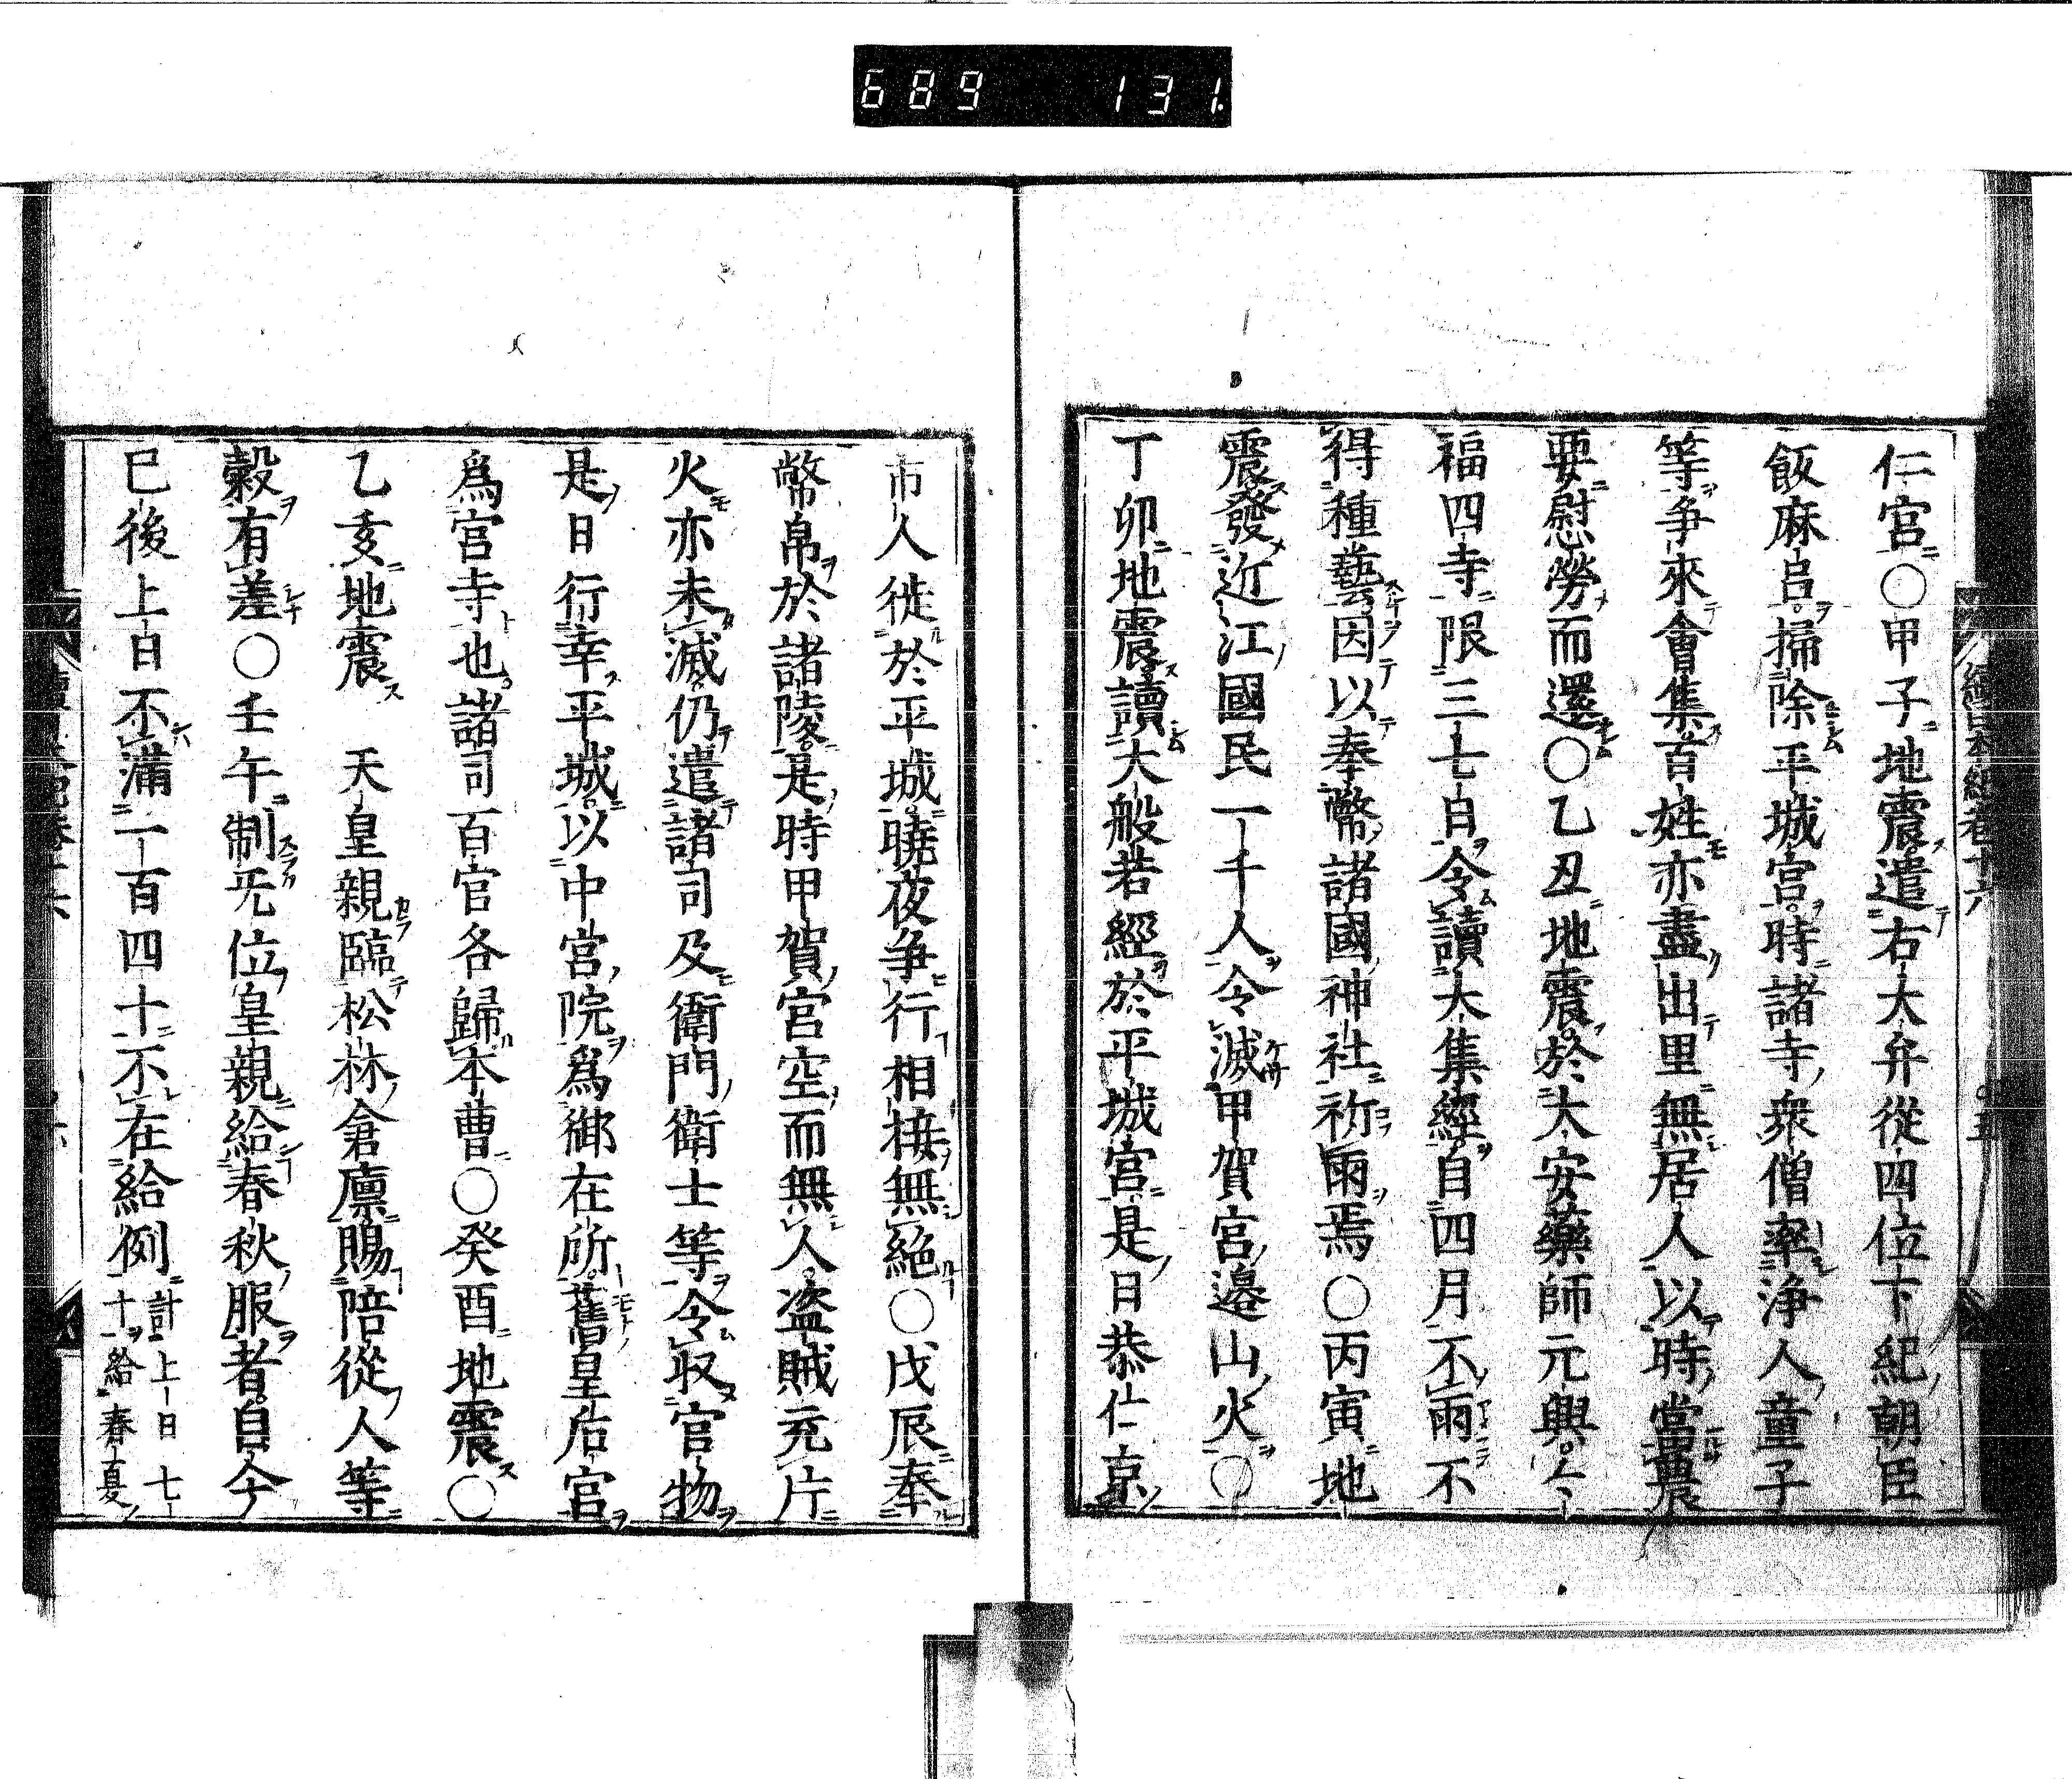 689 131
仁宮○甲子地震遣右大弁從四位下紀朝臣
飯麻呂掃除平城宮時諸寺衆僧率淨人童子
等爭來會集百姓亦盡出里無居人以時當農
要慰勞而還○乙丑地震於大安藥師元興
福四寺限三七日令讀大集經自四月不雨不
得種藝因以奉幣諸國神社祈雨焉○丙寅地
震發近江國民一千人令滅甲賀宮邊山火○
丁卯地震讀大般若經於平城宮是日恭仁京
市人徙於平城曉夜爭行相接無絕○戊辰奉
幣帛於諸陵是時甲賀宮空而無人盗賊充斥
火亦未滅仍遣諸司及衛門衛士等令収官物
是日行幸平城以中宮院爲御在所舊皇后宮
爲宮寺也諸司百官各歸本曹○癸酉地震○
乙亥地震 天皇親臨松林倉廩賜陪從人等
穀有差○壬午制无位皇親給春秋服者自今
已後上日不滿一百四十不在給例計上日七
十給春夏